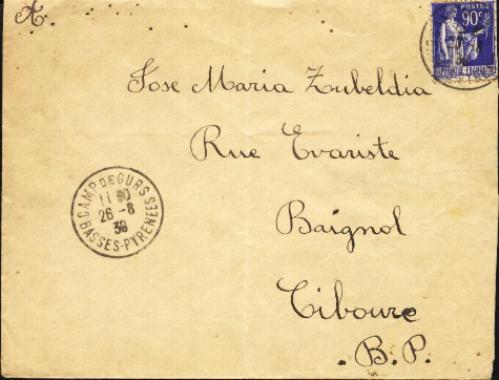 A.
POSTES
90c
Jose Maria Zubeldia
Rue Evariste
Baignol
Ciboure
B.P.
CAMP DE GURS
11 30
26-8
39
BASSES-PYRENEES